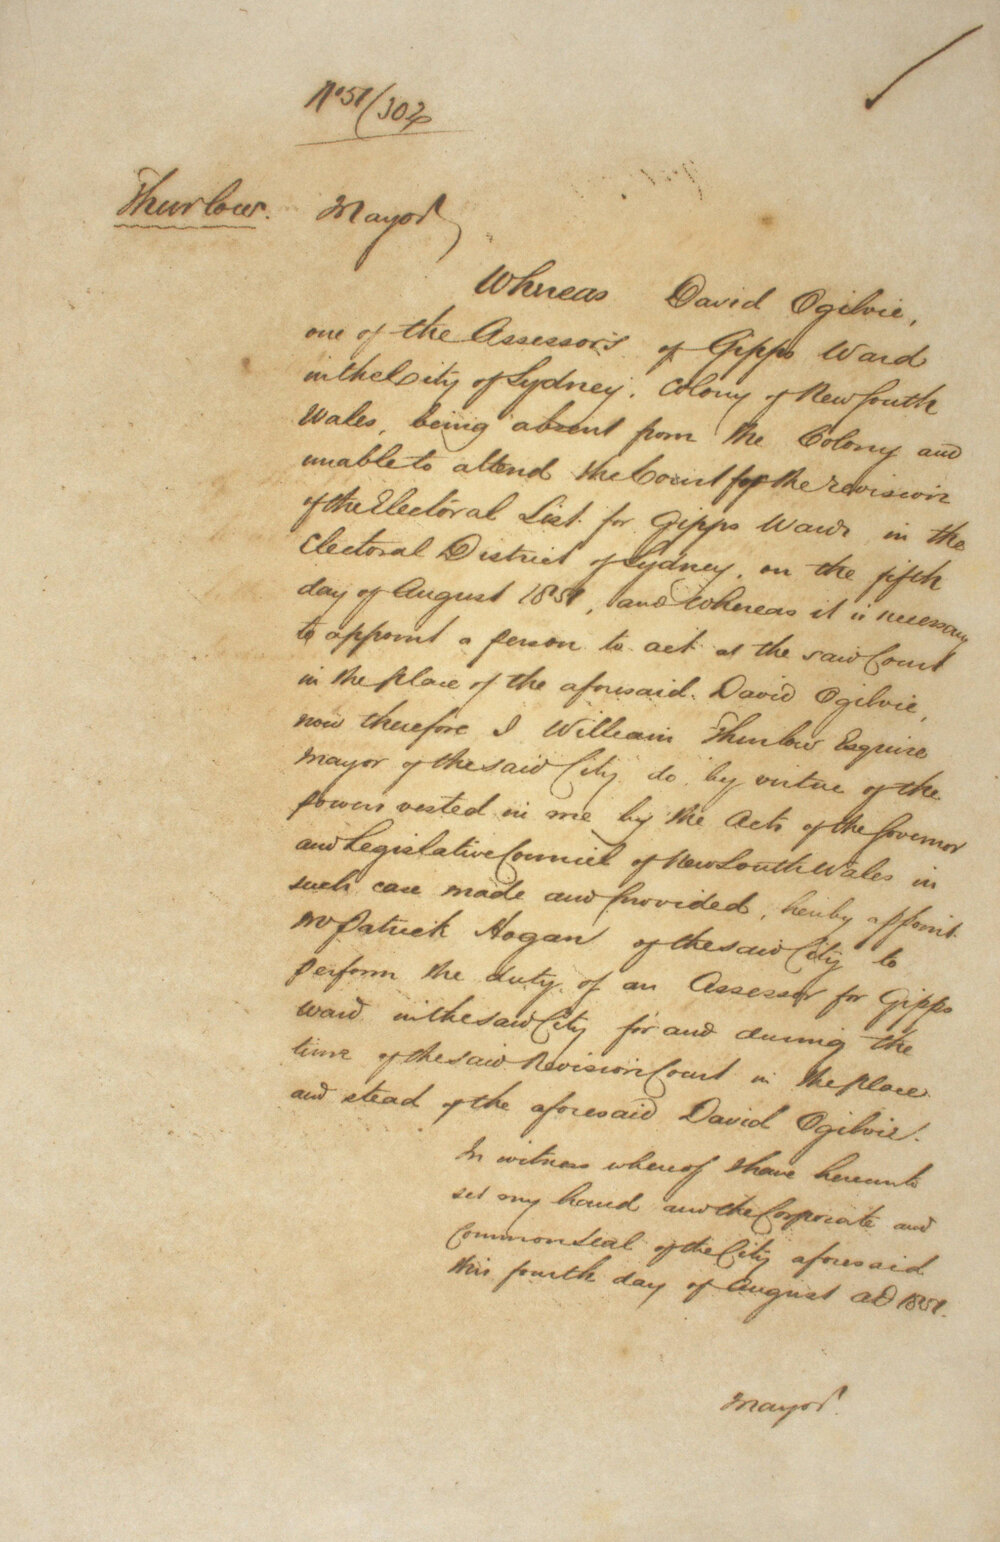 No 51/302
Thurlow. Mayor
Whereas David Ogilvie,
one of the Assessors of Gipps Ward
in the City of Sydney, Colony of New South
Wales, being absent from the Colony and
unable to attend the Court for the revision
of the Electoral List for Gipps Ward in the
Electoral District of Sydney, on the fifth
day of August 1851, and Whereas it is necessary
to appoint a person to act at the said Court
in the place of the aforesaid David Ogilvie,
now therefore I William Thurlow Esquire
Mayor of the said City do by virtue of the
powers vested in me by the Acts of the Governor
and Legislative Council of New South Wales in
such case made and provided, hereby appoint
Mr Patrick Hogan of the said City to
perform the duty of an Assessor for Gipps
Ward in the said City for and during the
time of the said Revision Court in the place
and stead of the aforesaid David Ogilvie.
In witness whereof I have hereunto
set my hand and the Corporate and
Common Seal of the City aforesaid
this fourth day of August AD 1851.
Mayor